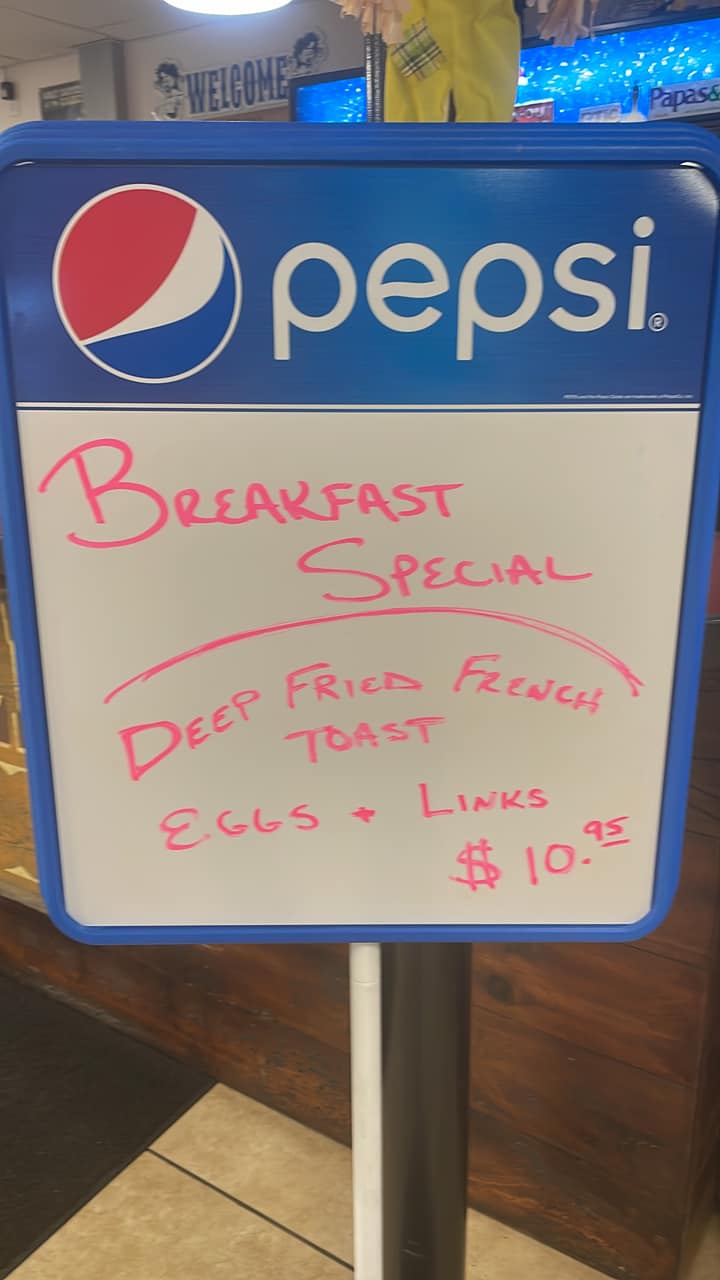 WELCOME
Papas&
pepsi®
BREAKFAST
SPECIAL
DEEP FRIED FRENCH
TOAST
EGGS + LINKS
$10.95